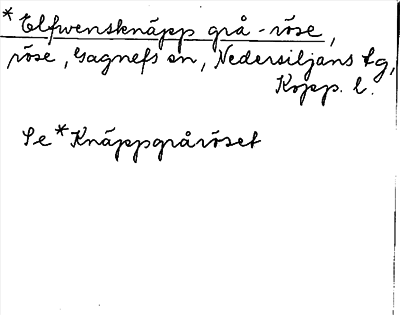 *Elfwensknäpp grå-röse,
röse, Gagnefs sn, Nedersiljans tg,
Kopp. l.
Se *Knäppgråröset